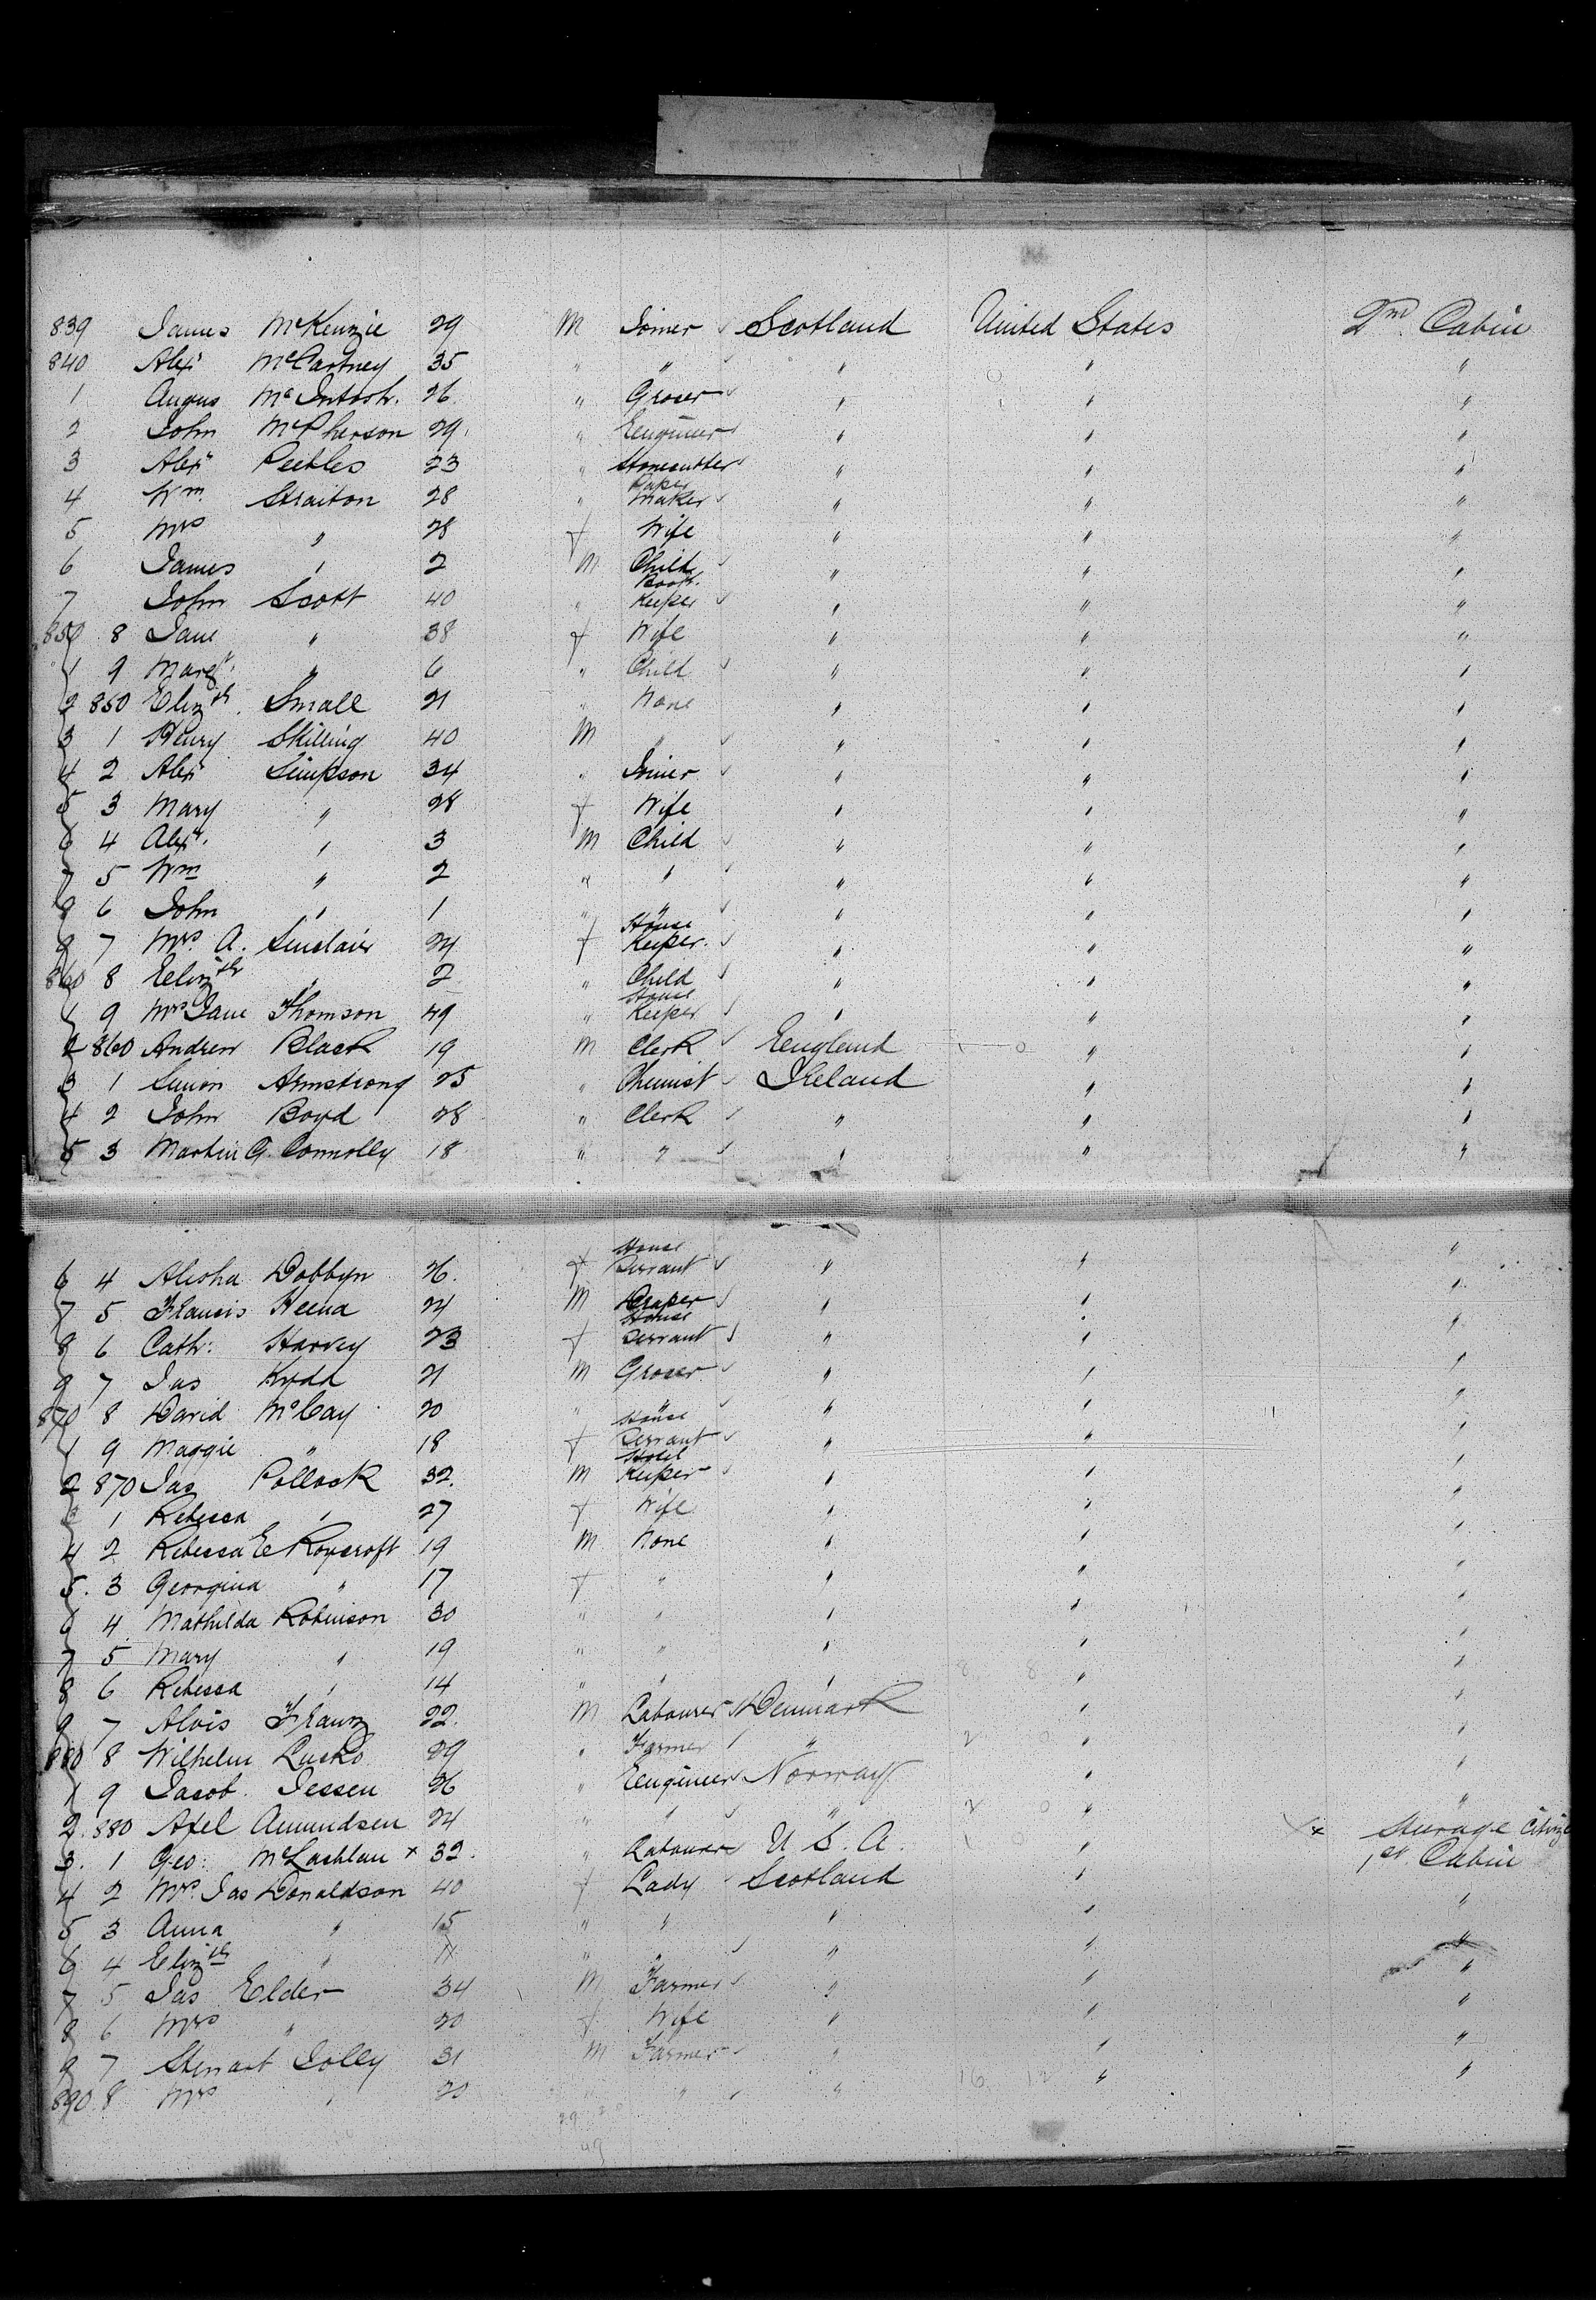 839 James McKenzie 29 M Joiner Scotland United States 2nd Cabin
840 Alexr McCartney 35 " " " " "
1 Angus McIntosh. 26. " Grocer " " "
2 John McPherson 29. " Engineer " " "
3 Alexr Peebles 23 " Stonecutter " " "
4 Wm. Straiton 28 " Paper Maker " " "
5 Mrs " 28 f Wife " " "
6 James " 2 M Child " " "
7 John Scott 40 " Book Keeper " " "
850 8 Jane " 38 f Wife " " "
1 9 Margt. " 6 " Child " " "
2 850 Elizth. Small 21 " None " " "
3 1 Henry Skilling 40 M " " " "
4 2 Alexr Simpson 34 " Joiner " " "
5 3 Mary " 28 f Wife " " "
6 4 Alexr. " 3 M Child " " "
7 5 Wm " 2 " " " " "
8 6 John " 1 " " " " "
9 7 Mrs. A. Sinclair 24 f House Keeper. " " "
860 8 Elizth " 2 " Child " " "
1 9 Mrs Jane Thomson 49 " House Keeper " " "
2 860 Andrew Black 19 M Clerk England " "
3 1 Simon Armstrong 25 " Chemist Ireland " "
4 2 John Boyd 28 " Clerk " " "
5 3 Martin G. Connolly 18 " " " " "
6 4 Alesha Dobbyn 26. f House Servant " " "
7 5 Francis Heena 24 M Draper " " "
8 6 Cathr: Harvey 23 f House Servant " " "
9 7 Jas Kydd 21 M Grocer " " "
870 8 David McCay 20 " " " " "
1 9 Maggie " 18 f House Servant " " "
2 870 Jas Pollock 32. M Hotel Keeper " " "
1 Rebecca " 27 f Wife " " "
4 2 Rebecca E Roycroft 19 M None " " "
5. 3 Georgina " 17 f " " " "
6 4. Mathilda Robinson 30 " " " " "
7 5 Mary " 19 " " " " "
8 6 Rebecca " 14 " " " " "
9 7 Alois Franz 22. M Labourer Denmark " "
880 8 Wilhelm 29 " Farmer " " "
1 9 Jacob. Jessen 26 " Engineer Norway " "
2. 880 Axel Amundsen 24 " " " " "
3. 1 Geo: McLachlan x 32. " Labourer U. S. A. " x Steerage Citize
4 2 Mrs. Jas Donaldson 40 f Lady Scotland " 1st Cabin
5 3 Anna " 15 " " " " "
6 4 Elizth " 11 " " " " "
7 5 Jas Elder 34 M Farmer " " "
8 6 Mrs " 20 f Wife " " "
9 7 Stewart Jolly 31 M Farmer " " "
890 8 Mrs " 20 " " " " "
29 20
49